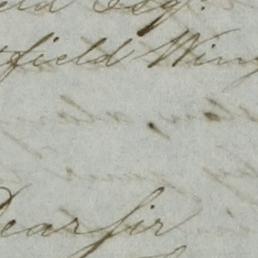 eld Esq.
tfield Win
Dear Sir